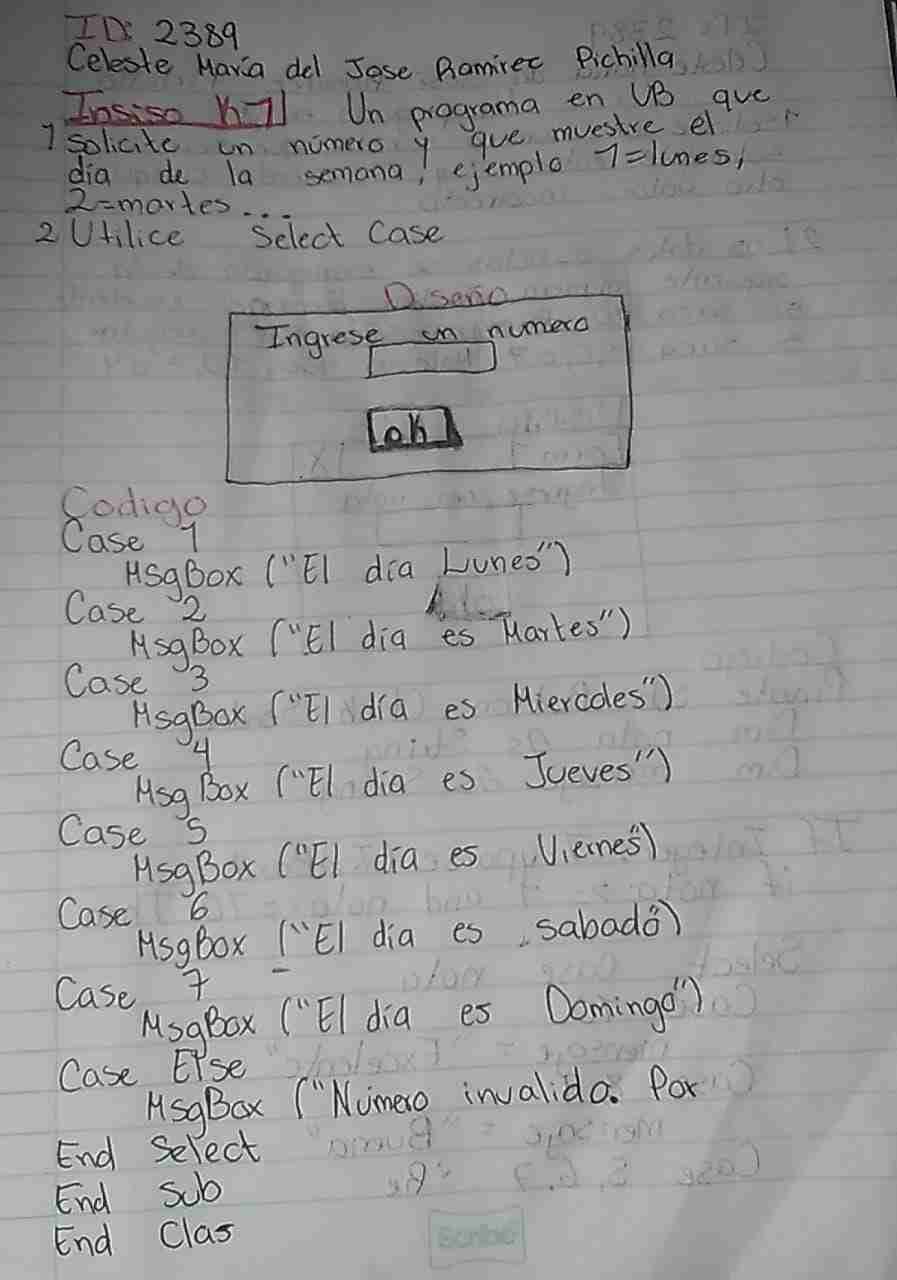 ID: 2389
Celeste María del Jose Ramirez Pichilla
Insiso K-1 Un programa en VB que
1 Solicite un número y que muestre el
día de la semana, ejemplo 1=lunes,
2=martes...
2 Utilice Select Case
Diseño
Ingrese un numero
ok
Codigo
Case 1
MsgBox ("El día Lunes")
Case 2
MsgBox ("El día es Martes")
Case 3
MsgBox ("El día es Miercoles")
Case 4
MsgBox ("El día es Jueves")
Case 5
MsgBox ("El día es Viernes")
Case 6
MsgBox ("El día es sabado")
Case 7
MsgBox ("El día es Domingo")
Case Else
MsgBox ("Número invalido. Por
End Select
End Sub
End Clas
Scribe